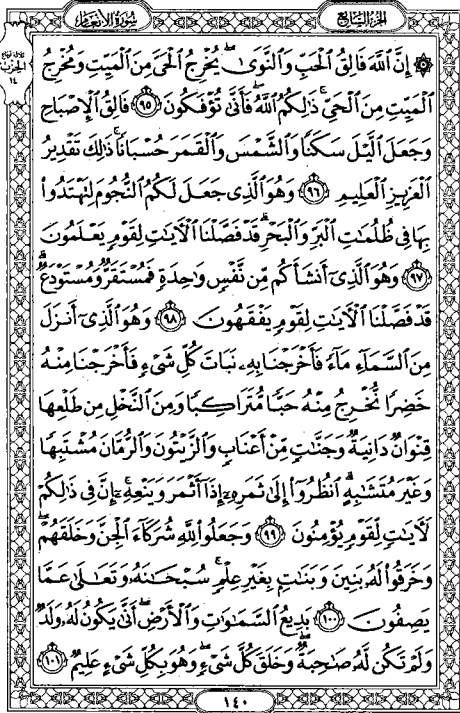 سورة الأنعام
الجزء السابع
الحزب
١٤
۞ إِنَّ ٱللَّهَ فَالِقُ ٱلْحَبِّ وَٱلنَّوَىٰ ۖ يُخْرِجُ ٱلْحَىَّ مِنَ ٱلْمَيِّتِ وَمُخْرِجُ
ٱلْمَيِّتِ مِنَ ٱلْحَىِّ ۚ ذَٰلِكُمُ ٱللَّهُ ۖ فَأَنَّىٰ تُؤْفَكُونَ ٩٥ فَالِقُ ٱلْإِصْبَاحِ
وَجَعَلَ ٱلَّيْلَ سَكَنًا وَٱلشَّمْسَ وَٱلْقَمَرَ حُسْبَانًا ۚ ذَٰلِكَ تَقْدِيرُ
ٱلْعَزِيزِ ٱلْعَلِيمِ ٩٦ وَهُوَ ٱلَّذِى جَعَلَ لَكُمُ ٱلنُّجُومَ لِتَهْتَدُوا۟
بِهَا فِى ظُلُمَٰتِ ٱلْبَرِّ وَٱلْبَحْرِ ۗ قَدْ فَصَّلْنَا ٱلْءَايَٰتِ لِقَوْمٍ يَعْلَمُونَ
٩٧ وَهُوَ ٱلَّذِىٓ أَنشَأَكُم مِّن نَّفْسٍ وَٰحِدَةٍ فَمُسْتَقَرٌّ وَمُسْتَوْدَعٌ ۗ
قَدْ فَصَّلْنَا ٱلْءَايَٰتِ لِقَوْمٍ يَفْقَهُونَ ٩٨ وَهُوَ ٱلَّذِىٓ أَنزَلَ
مِنَ ٱلسَّمَآءِ مَآءً فَأَخْرَجْنَا بِهِۦ نَبَاتَ كُلِّ شَىْءٍ فَأَخْرَجْنَا مِنْهُ
خَضِرًا نُّخْرِجُ مِنْهُ حَبًّا مُّتَرَاكِبًا وَمِنَ ٱلنَّخْلِ مِن طَلْعِهَا
قِنْوَانٌ دَانِيَةٌ وَجَنَّٰتٍ مِّنْ أَعْنَابٍ وَٱلزَّيْتُونَ وَٱلرُّمَّانَ مُشْتَبِهًا
وَغَيْرَ مُتَشَٰبِهٍ ۗ ٱنظُرُوٓا۟ إِلَىٰ ثَمَرِهِۦٓ إِذَآ أَثْمَرَ وَيَنْعِهِۦٓ ۚ إِنَّ فِى ذَٰلِكُمْ
لَءَايَٰتٍ لِّقَوْمٍ يُؤْمِنُونَ ٩٩ وَجَعَلُوا۟ لِلَّهِ شُرَكَآءَ ٱلْجِنَّ وَخَلَقَهُمْ ۖ
وَخَرَقُوا۟ لَهُۥ بَنِينَ وَبَنَٰتٍۭ بِغَيْرِ عِلْمٍ ۚ سُبْحَٰنَهُۥ وَتَعَٰلَىٰ عَمَّا
يَصِفُونَ ١٠٠ بَدِيعُ ٱلسَّمَٰوَٰتِ وَٱلْأَرْضِ ۖ أَنَّىٰ يَكُونُ لَهُۥ وَلَدٌ
وَلَمْ تَكُن لَّهُۥ صَٰحِبَةٌ ۖ وَخَلَقَ كُلَّ شَىْءٍ ۖ وَهُوَ بِكُلِّ شَىْءٍ عَلِيمٌ ١٠١
١٤٠